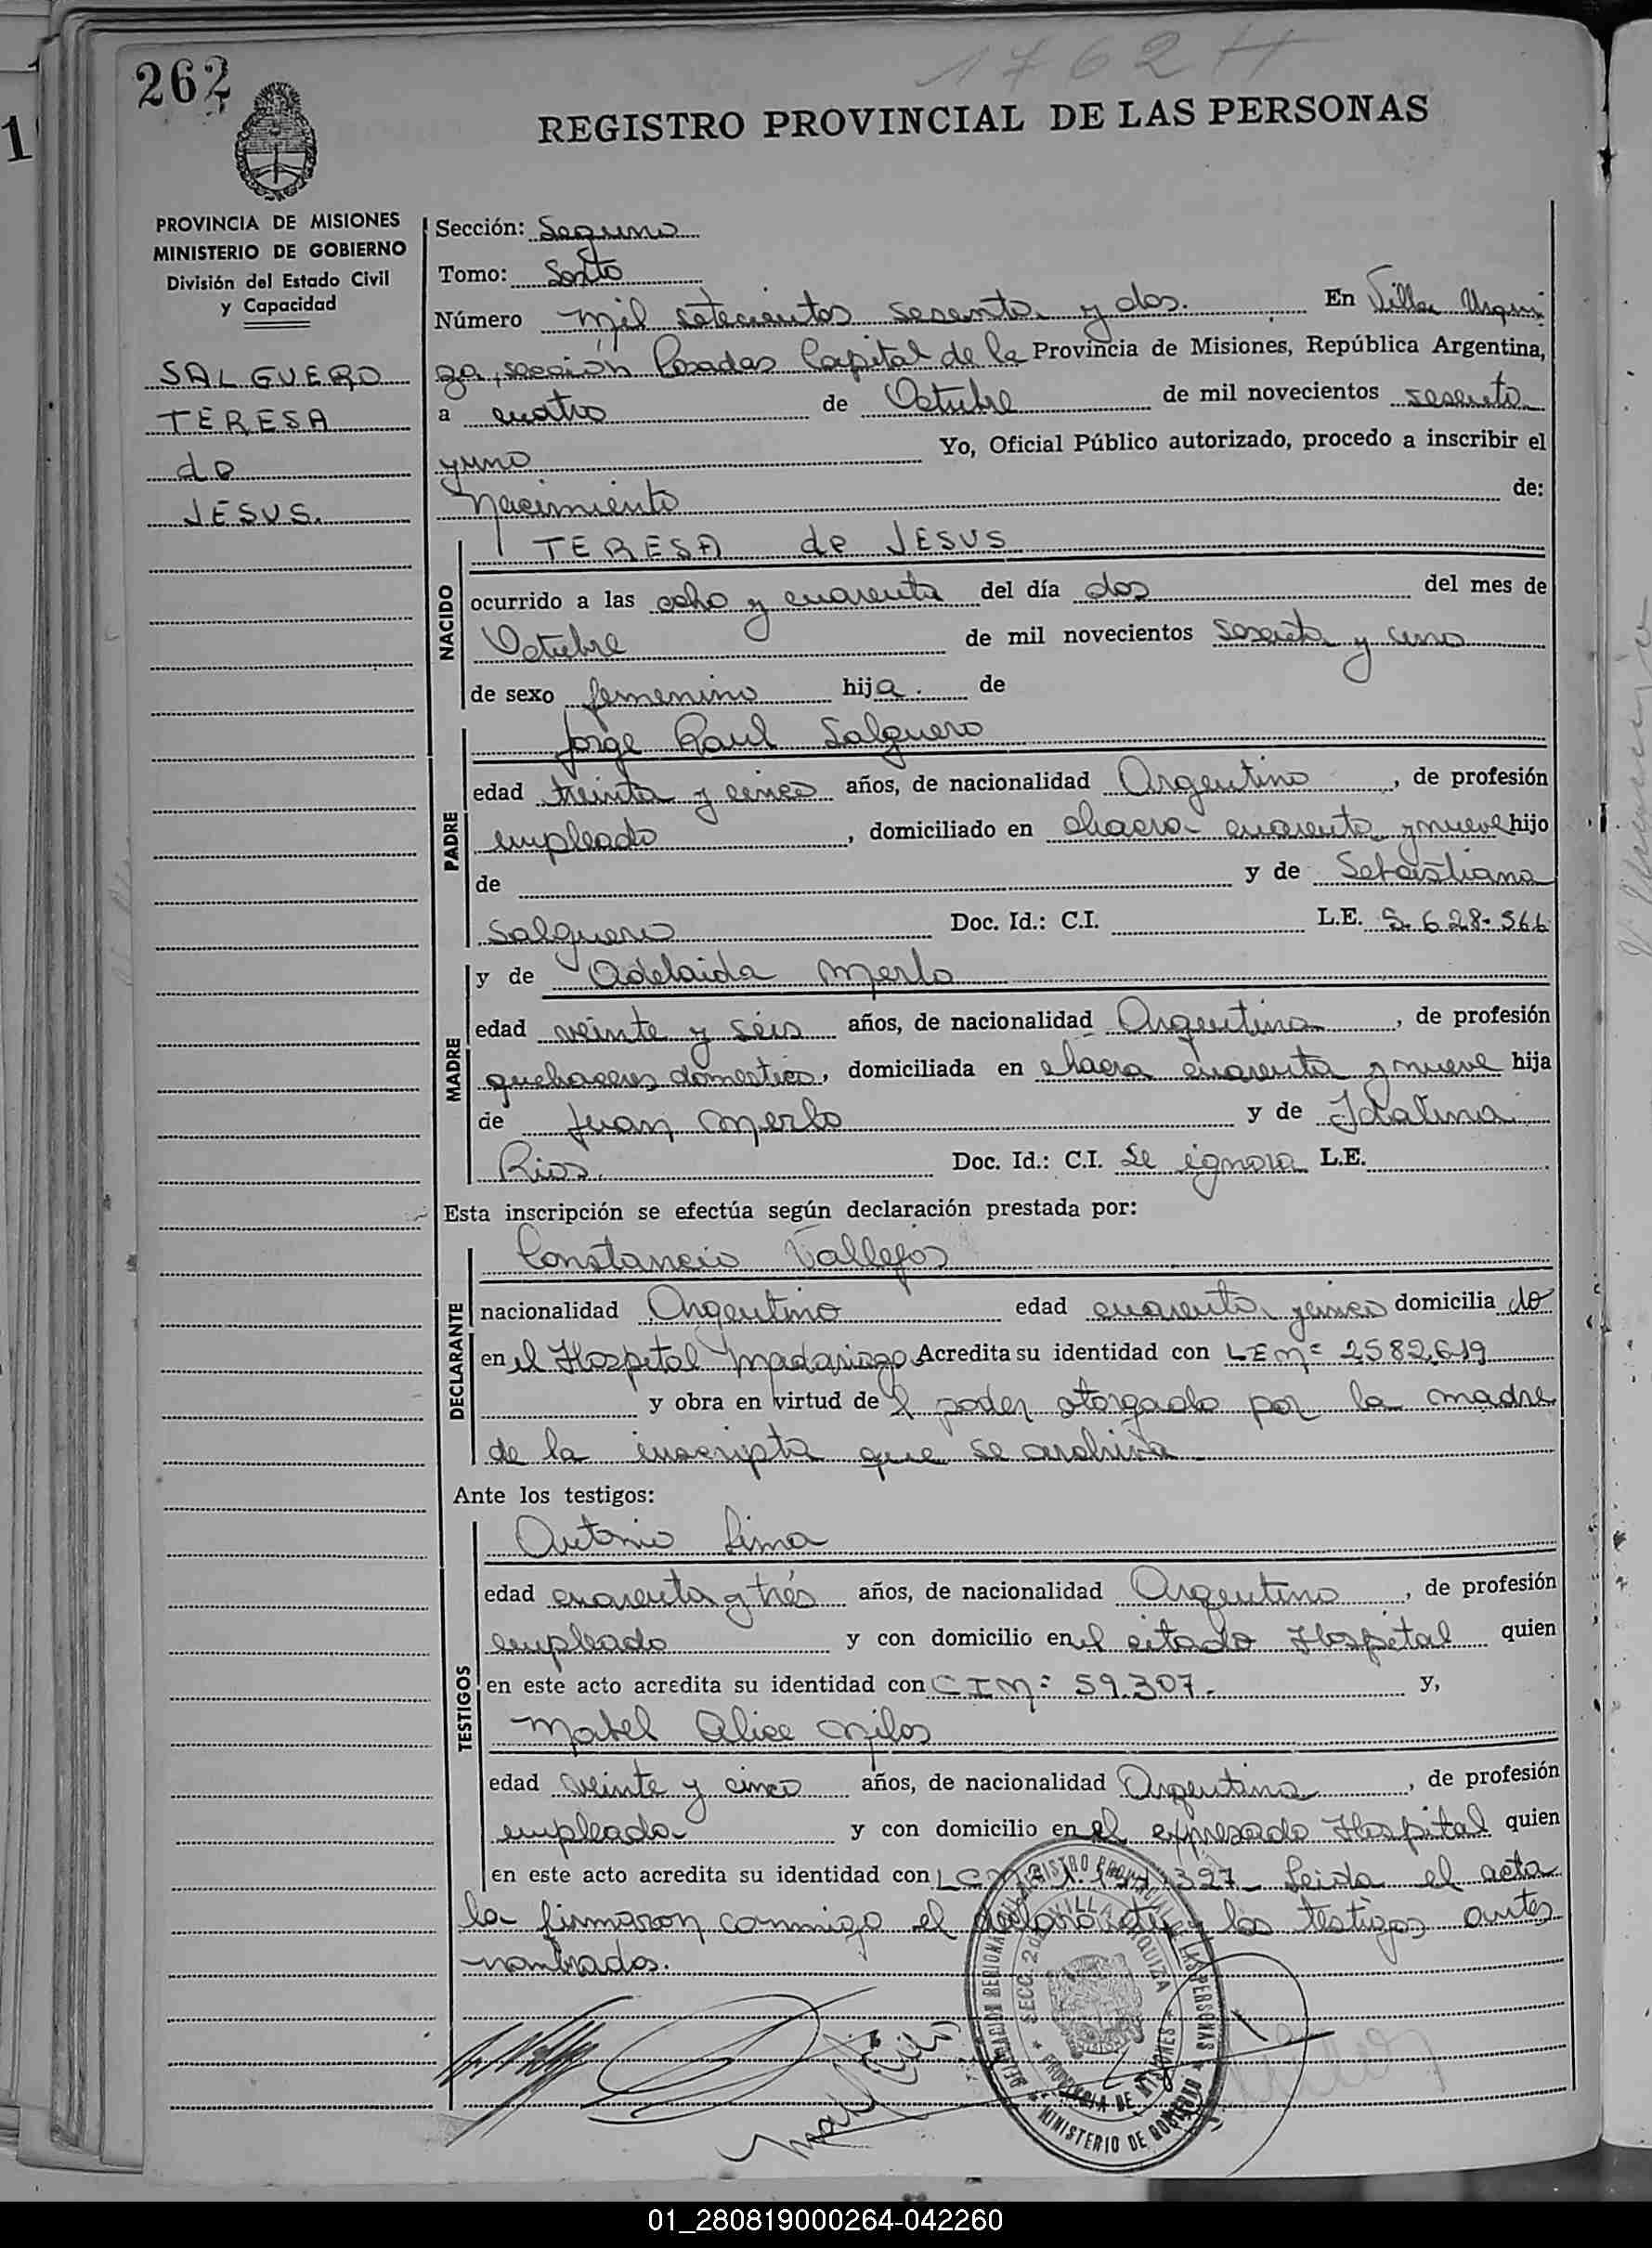 262
1762 H
1
REGISTRO PROVINCIAL DE LAS PERSONAS
PROVINCIA DE MISIONES
MINISTERIO DE GOBIERNO
División del Estado Civil
y Capacidad
SALGUERO
TERESA
de
JESUS.
Sección: Segunda
Tomo: Sexto
Número mil setecientos sesenta y dos. En Villa Urqui
za, sección Posadas Capital de la Provincia de Misiones, República Argentina,
a cuatro de Octubre de mil novecientos sesenta
y uno Yo, Oficial Público autorizado, procedo a inscribir el
Nacimiento de:
NACIDO
TERESA de JESUS
ocurrido a las ocho y cuarenta del día dos del mes de
Octubre de mil novecientos sesenta y uno
de sexo femenino hija. de
PADRE
Jorge Raul Salguero
edad treinta y cinco años, de nacionalidad Argentino, de profesión
empleado, domiciliado en chacra cuarenta y nueve hijo
de y de Sebastiana
Salguero Doc. Id.: C.I. L.E. 5.628.566
MADRE
y de Adelaida Merlo
edad veinte y séis años, de nacionalidad Argentina, de profesión
quehaceres domestico, domiciliada en chacra cuarenta y nueve hija
de Juan Merlo y de Idalina
Rios. Doc. Id.: C.I. Se ignora L.E.
Esta inscripción se efectúa según declaración prestada por:
DECLARANTE
Constancio Vallejos
nacionalidad Argentino edad cuarenta y cinco domicilia do
en el Hospital Madariaga Acredita su identidad con LE Nº 2582.619
y obra en virtud del poder otorgado por la madre
de la inscripta que se archiva
Ante los testigos:
TESTIGOS
Antonio Lima
edad cuarenta y trés años, de nacionalidad Argentino, de profesión
empleado y con domicilio en el citado Hospital quien
en este acto acredita su identidad con C I Nº 59.307. y,
Mabel Alice
edad veinte y cinco años, de nacionalidad Argentina, de profesión
empleada y con domicilio en el expresado Hospital quien
en este acto acredita su identidad con LC 327_ Leida el acta
la firmaron conmigo el declarante y los testigos antes
nombrados.
REGISTRO PROVINCIAL DE LAS PERSONAS
SECC. 2da VILLA URQUIZA
PROVINCIA DE MISIONES
MINISTERIO DE GOBIERNO
01_280819000264-042260